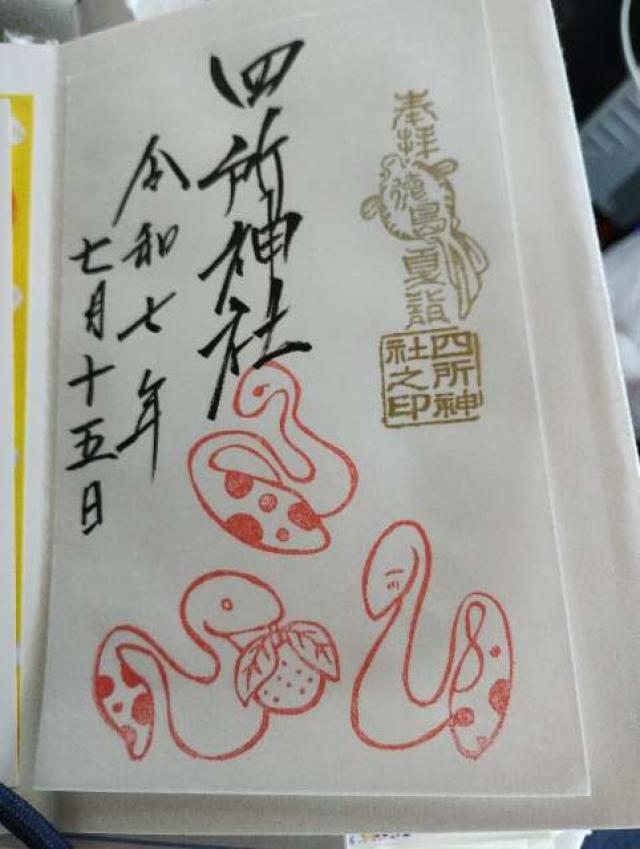 奉拝
徳島
夏詣
四所神
社之印
四所神社
令和七年
七月十五日